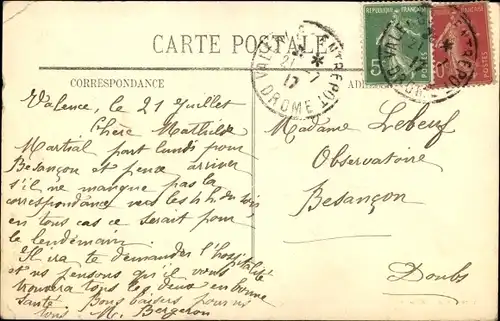 CARTE POSTALE
CORRESPONDANCE
Valence, le 21 Juillet
Chère Mathilde
Martial part lundi pour
Besançon et pense arriver
s'il ne manque pas la
correspondance vers les 4 h. du soir,
en tous cas ce serait pour
le lendemain.
Il ira te demander l'hospitalité
et ns pensons qu'il vous
trouvera tous les deux en bonne
santé. Bons baisers pour vs
tous M. Bergeron
Madame Lebeuf
Observatoire
Besançon
Doubs
VALENCE ENTREPOT
21 - 7
17
DROME
REPUBLIQUE FRANÇAISE
5
10